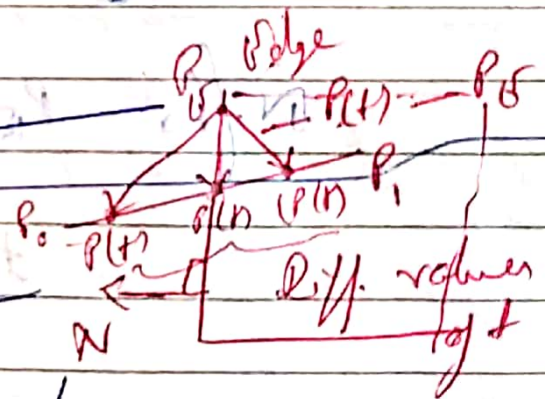 Edge
P P(t) P
P(t) P(t) P₁
P₀ P(t)
Diff. values
N of t